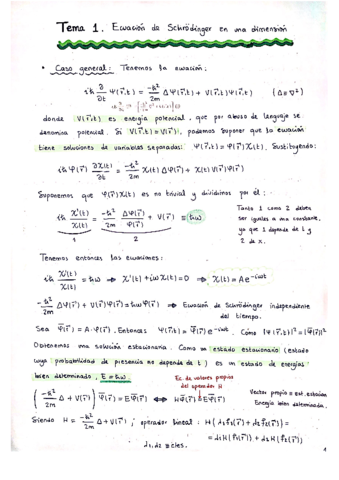 Tema 1. Ecuación de Schrödinger en una dimensión
• Caso general: Tenemos la ecuación:
iħ ∂/∂t Ψ(r⃗,t) = -ħ²/2m ΔΨ(r⃗,t) + V(r⃗,t)Ψ(r⃗,t) (Δ ≡ ∇²)
donde V(r⃗,t) es energía potencial, que por abuso de lenguaje se
denomina potencial. Si V(r⃗,t) = V(r⃗), podemos suponer que la ecuación
tiene soluciones de variables separadas: Ψ(r⃗,t) = Ψ(r⃗)χ(t). Sustituyendo:
iħ Ψ(r⃗) ∂χ(t)/∂t = -ħ²/2m χ(t) ΔΨ(r⃗) + χ(t)V(r⃗)Ψ(r⃗)
Suponemos que Ψ(r⃗)χ(t) es no trivial y dividimos por él:
iħ χ'(t)/χ(t) = -ħ²/2m ΔΨ(r⃗)/Ψ(r⃗) + V(r⃗) = ħω
1 2
Tanto 1 como 2 deben
ser iguales a una constante,
ya que 1 depende de t y
2 de x.
Tenemos entonces las ecuaciones:
iħ χ'(t)/χ(t) = ħω ⟹ χ'(t) + iω χ(t) = 0 ⟹ χ(t) = A e^{-iωt}
-ħ²/2m ΔΨ(r⃗) + V(r⃗)Ψ(r⃗) = ħω Ψ(r⃗) ⟹ Ecuación de Schrödinger independiente
del tiempo.
Sea Ψ̄(r⃗) = A·Ψ(r⃗). Entonces Ψ(r⃗,t) = Ψ̄(r⃗) e^{-iωt}. Cómo |Ψ(r⃗,t)|² = |Ψ̄(r⃗)|²
Obtenemos una solución estacionaria. Como un estado estacionario (estado
cuya probabilidad de presencia no depende de t) es un estado de energías
bien determinado, E = ħω.
Ec. de valores propios
del operador H
(-ħ²/2m Δ + V(r⃗)) Ψ̄(r⃗) = EΨ̄(r⃗) ⟺ HΨ̄(r⃗) = EΨ̄(r⃗)
Vector propio = est. estacion
Energía bien determinada.
Siendo H = -ħ²/2m Δ + V(r⃗); operador lineal: H(λ₁f₁(r⃗) + λ₂f₂(r⃗)) =
= λ₁H(f₁(r⃗)) + λ₂H(f₂(r⃗))
λ₁, λ₂ = ctes.
1